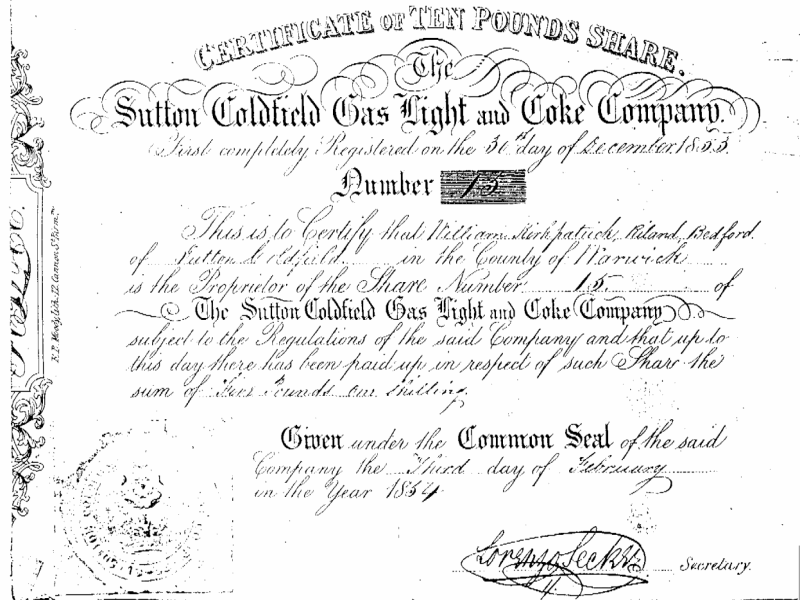 CERTIFICATE OF TEN POUNDS SHARE.
The
Sutton Coldfield Gas Light and Coke Company.
First completely Registered on the 30th day of December 1853
Number 15
This is to Certify that William Kirkpatrick, Riland, Bedford.
of Sutton Coldfield in the County of Warwick
is the Proprietor of the Share Number 15. of
The Sutton Coldfield Gas Light and Coke Company
subject to the Regulations of the said Company and that up to
this day there has been paid up in respect of such Share the
sum of Pounds one shilling.
Given under the Common Seal of the said
Company the Third day of February
in the Year 1854
Lorenzo Secretary.